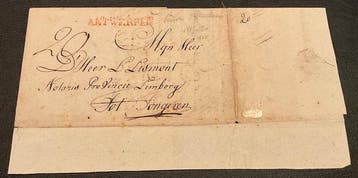 ANTWERPEN
20
Mÿn Heer
D'Heer L. Lismont
Notaris Provincie Limborg
Tot Tongeren